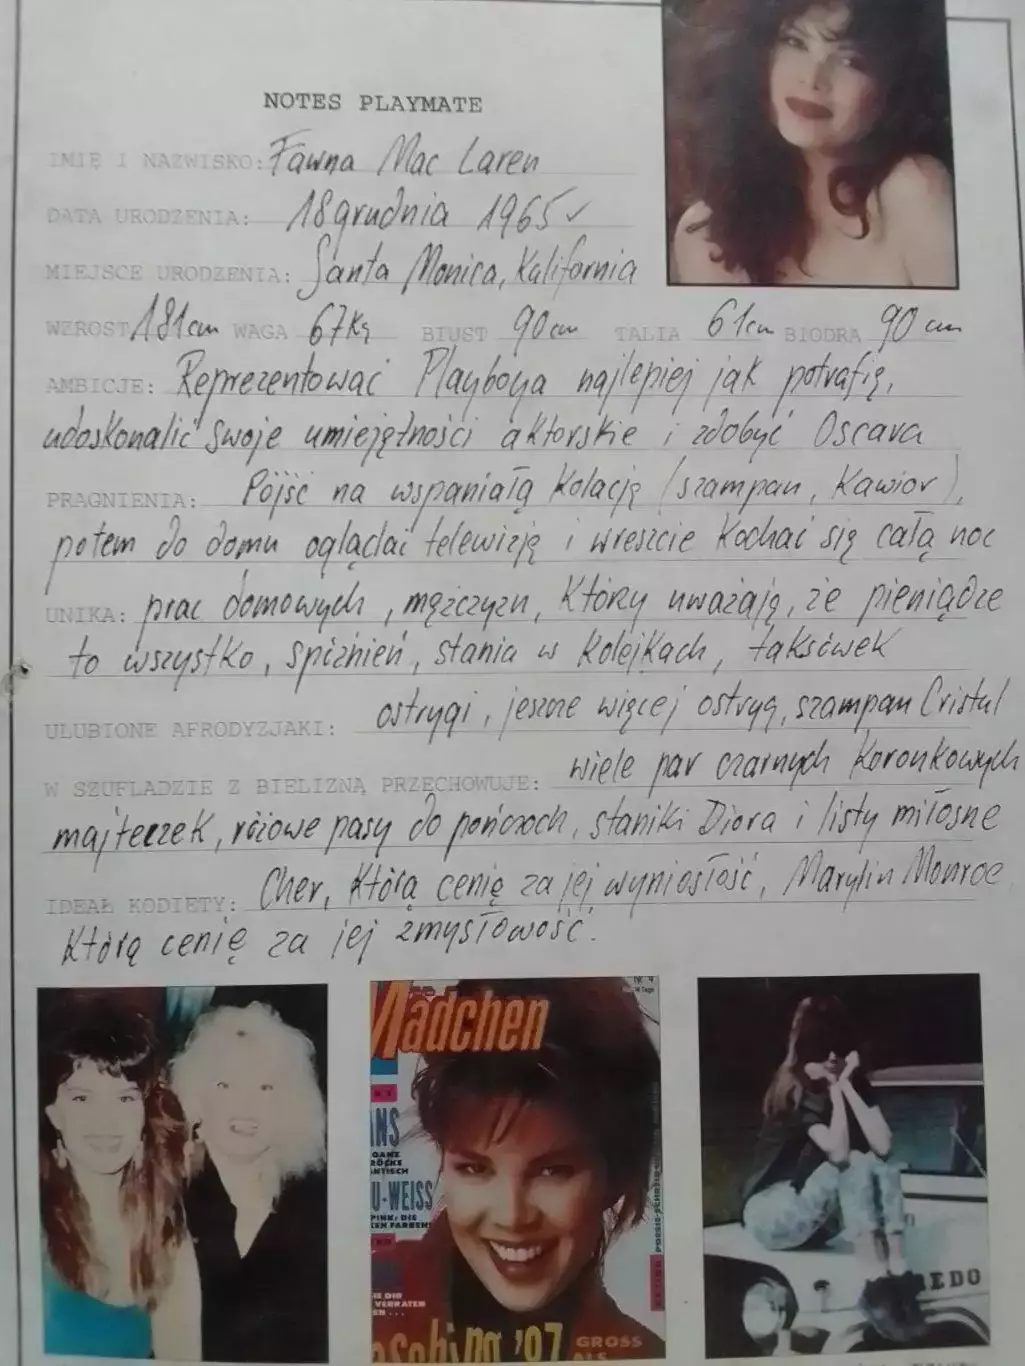 NOTES PLAYMATE
IMIĘ I NAZWISKO: Fawna Mac Laren
DATA URODZENIA: 18 grudnia 1965
MIEJSCE URODZENIA: Santa Monica, Kalifornia
WZROST 181cm WAGA 67kg BIUST 90cm TALIA 61cm BIODRA 90cm
AMBICJE: Reprezentować Playboya najlepiej jak potrafię,
udoskonalić swoje umiejętności aktorskie i zdobyć Oscara
PRAGNIENIA: Pójść na wspaniałą kolację (szampan, kawior),
potem do domu oglądać telewizję i wreszcie kochać się całą noc
UNIKA: prac domowych, mężczyzn, którzy uważają, że pieniądze
to wszystko, spóźnień, stania w kolejkach, taksówek
ULUBIONE AFRODYZJAKI: ostrygi, jeszcze więcej ostryg, szampan Cristal
W SZUFLADZIE Z BIELIZNĄ PRZECHOWUJE: wiele par czarnych koronkowych
majteczek, różowe pasy do pończoch, staniki Diora i listy miłosne
IDEAŁ KOBIETY: Cher, którą cenię za jej wyniosłość, Marylin Monroe
którą cenię za jej zmysłowość.
Mädchen
Nr. 4
ANS
GANZ
RÖCKE
ANTISCH
U-WEISS
PINK: DIE
EN FARBEN
DIR
VERRATEN
sching '97
GROSS
EDO